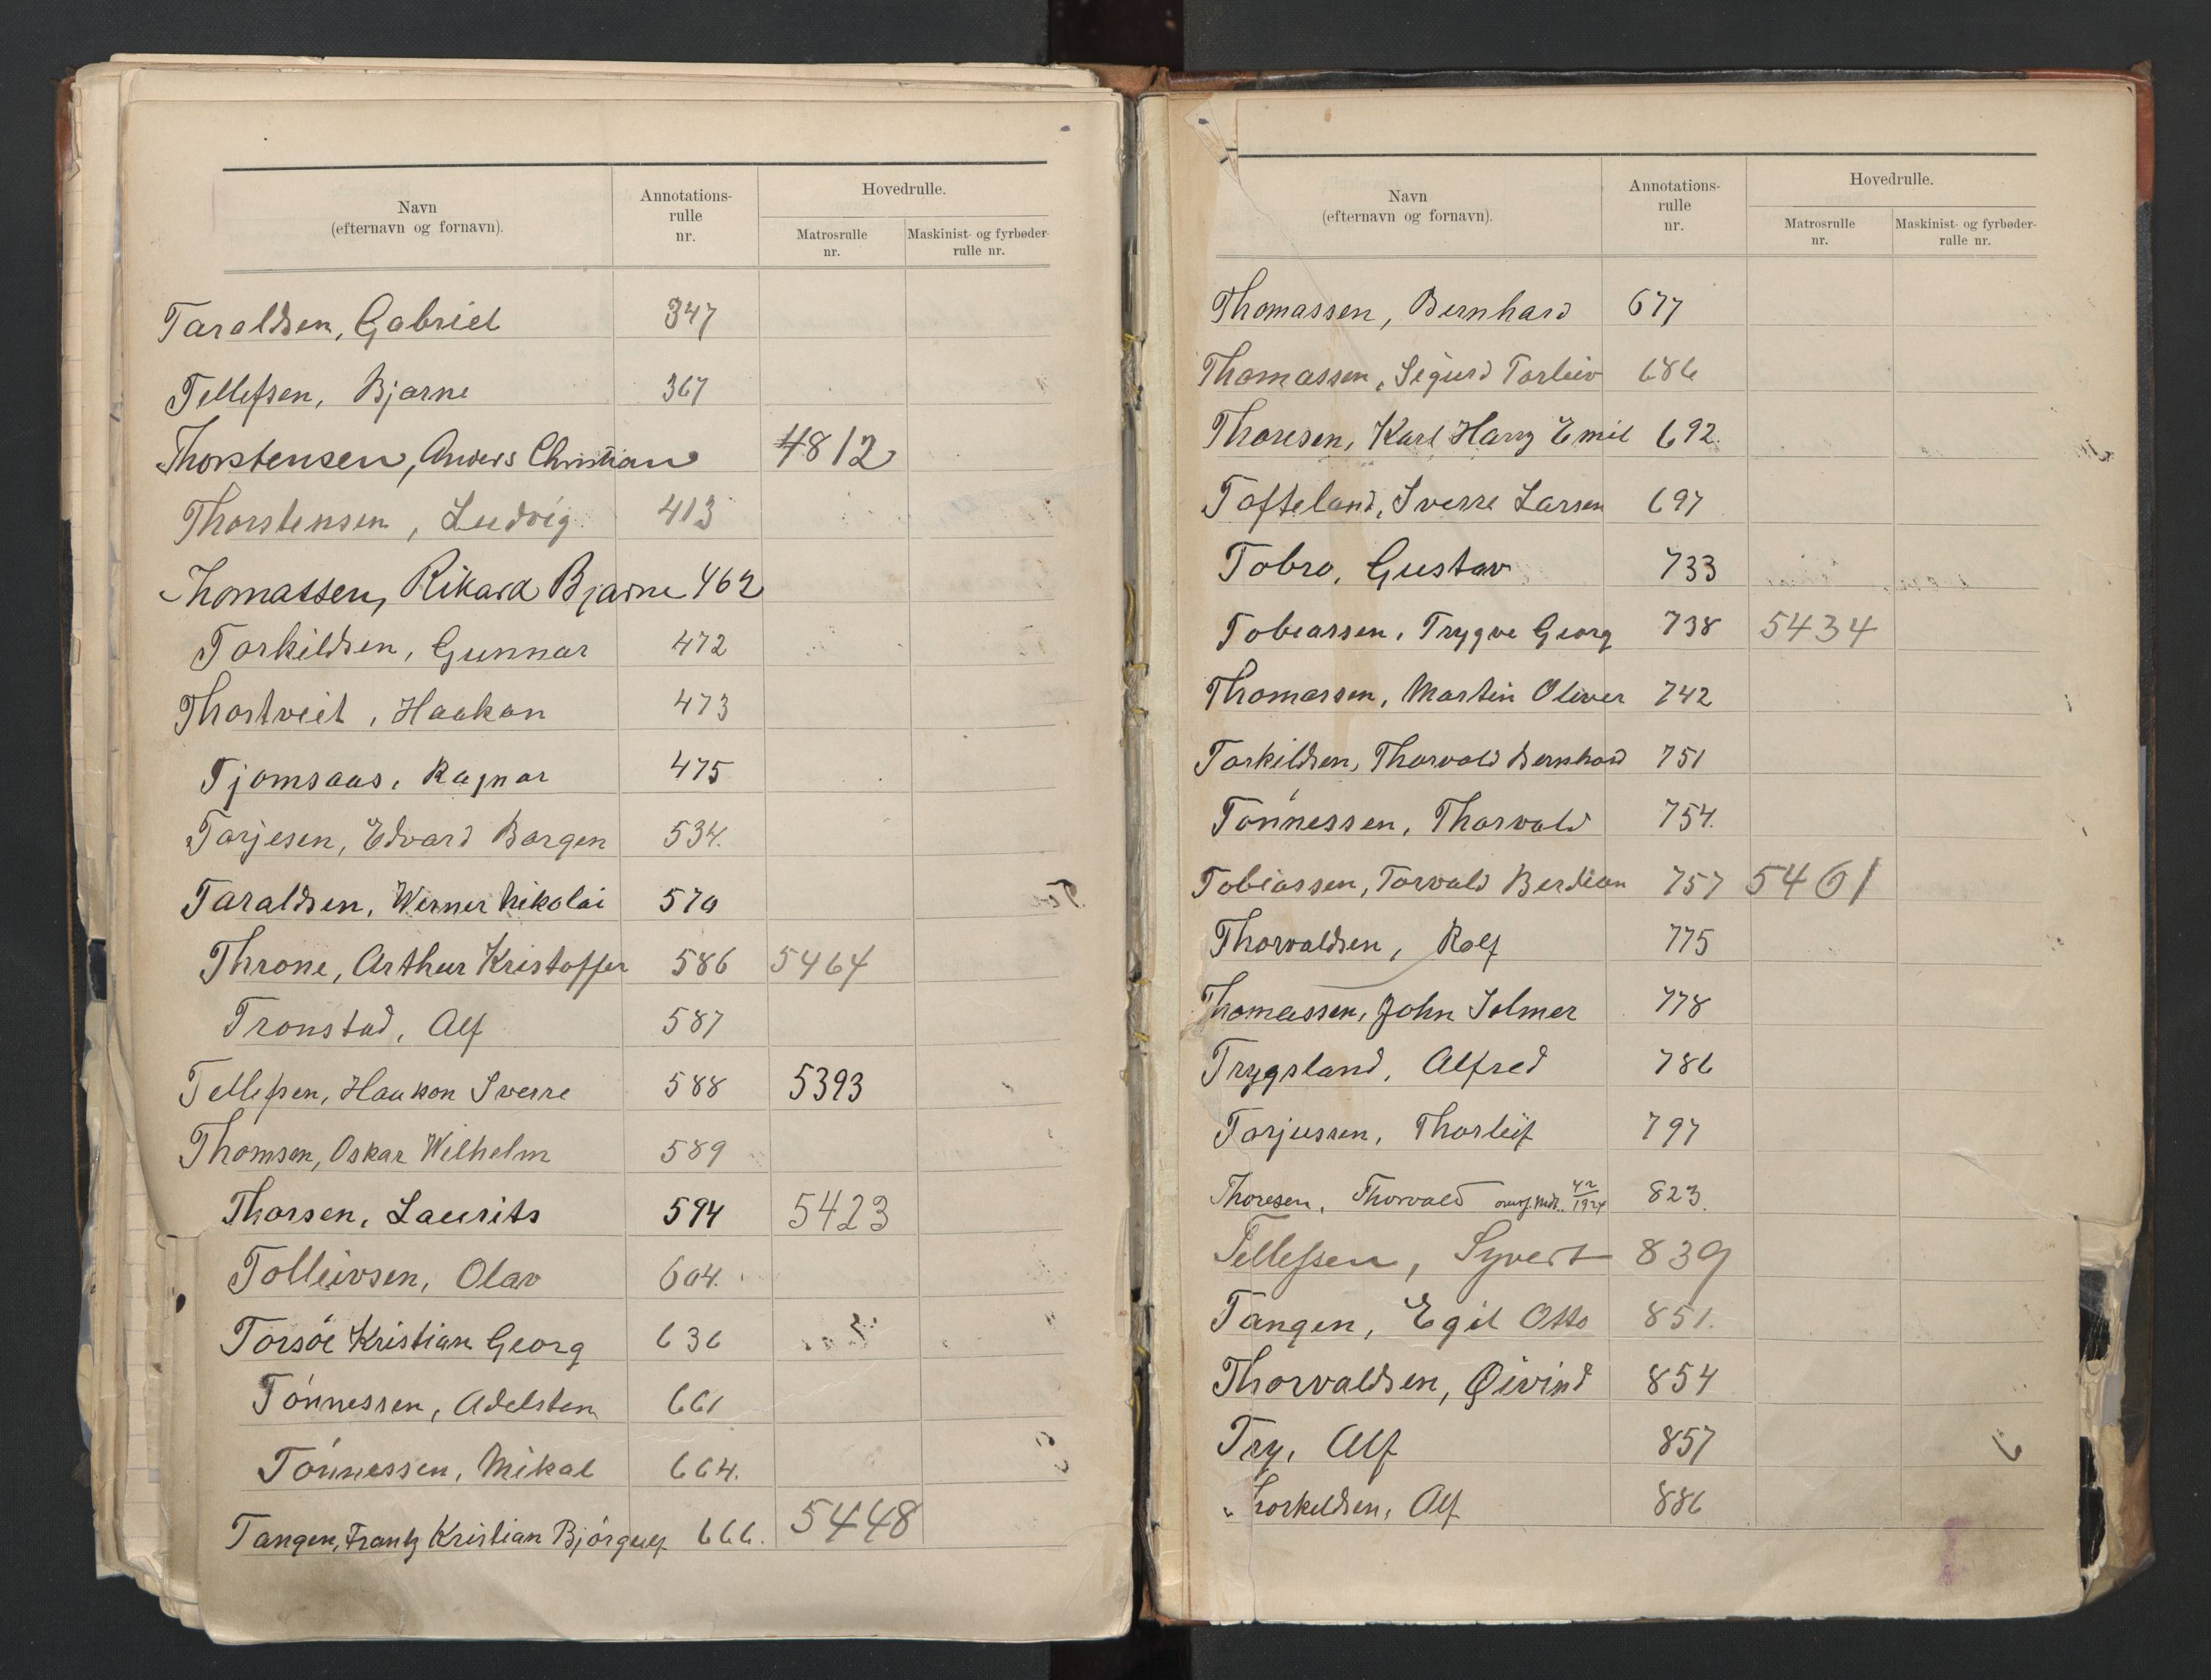 Navn
(efternavn og fornavn).
Annotations-
rulle
nr.
Hovedrulle.
Matrosrulle
nr.
Maskinist- og fyrbøder-
rulle nr.
Taraldsen, Gabriel 347
Tellefsen, Bjarne 367
Thorstensen, Anders Christian 4812
Thorstensen, Ludvig 413
Thomassen, Rikard Bjarne 462
Torkildsen, Gunnar 472
Thortveit, Haakon 473
Tjomsaas, Ragnar 475
Torjesen, Edvard Borgen 534.
Taraldsen, Werner Nikolai 570
Throne, Arthur Kristoffer 586 5464
Tronstad, Alf 587
Tellefsen, Haakon Sverre 588 5393
Thomsen, Oskar Wilhelm 589
Thorsen, Laurits 594 5423
Tolleivsen, Olav 604.
Torsöe Kristian Georg 636
Tönnessen, Adelsten 661
Tönnessen, Mikal 664.
Tangen, Frantz Kristian Bjórgulf 666. 5448
Navn
(efternavn og fornavn).
Annotations-
rulle
nr.
Hovedrulle.
Matrosrulle
nr.
Maskinist- og fyrbøder-
rulle nr.
Thomassen, Bernhard 677
Thomassen, Sigurd Torleiv 686
Thoresen, Karl Harry Emil 692.
Tofteland, Sverre Larsen 697
Tobro, Gustav 733
Tobiassen, Trygve Georg 738 5434
Thomassen, Martin Oliver 742
Torkildsen, Thorvald Bernhard 751
Tönnessen, Thorvald 754.
Tobiassen, Torvald Berdian 757 5461
Thorvaldsen, Rolf 775
Thomassen, John Solmer 778
Trygsland, Alfred 786
Torjussen, Thorleif 797
Thoresen, Thorvald 42/1924 823.
Tellefsen, Syvert 839
Tangen, Egil Otto 851.
Thorvaldsen, Øivind 854
Try, Alf 857
Thorkeldsen, Alf 886